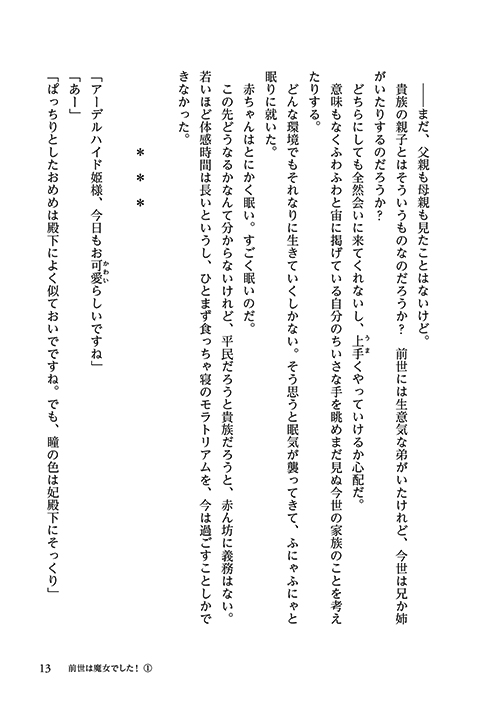 ――まだ、父親も母親も見たことはないけど。
貴族の親子とはそういうものなのだろうか？　前世には生意気な弟がいたけれど、今世は兄か姉
がいたりするのだろうか？
どちらにしても全然会いに来てくれないし、上手くやっていけるか心配だ。
うま
意味もなくふわふわと宙に掲げている自分のちいさな手を眺めまだ見ぬ今世の家族のことを考え
たりする。
どんな環境でもそれなりに生きていくしかない。そう思うと眠気が襲ってきて、ふにゃふにゃと
眠りに就いた。
赤ちゃんはとにかく眠い。すごく眠いのだ。
この先どうなるかなんて分からないけれど、平民だろうと貴族だろうと、赤ん坊に義務はない。
若いほど体感時間は長いというし、ひとまず食っちゃ寝のモラトリアムを、今は過ごすことしかで
きなかった。
＊　＊　＊
「アーデルハイド姫様、今日もお可愛らしいですね」
かわい
「あー」
「ぱっちりとしたおめめは殿下によく似ておいでですね。でも、瞳の色は妃殿下にそっくり」
13　前世は魔女でした！ ①